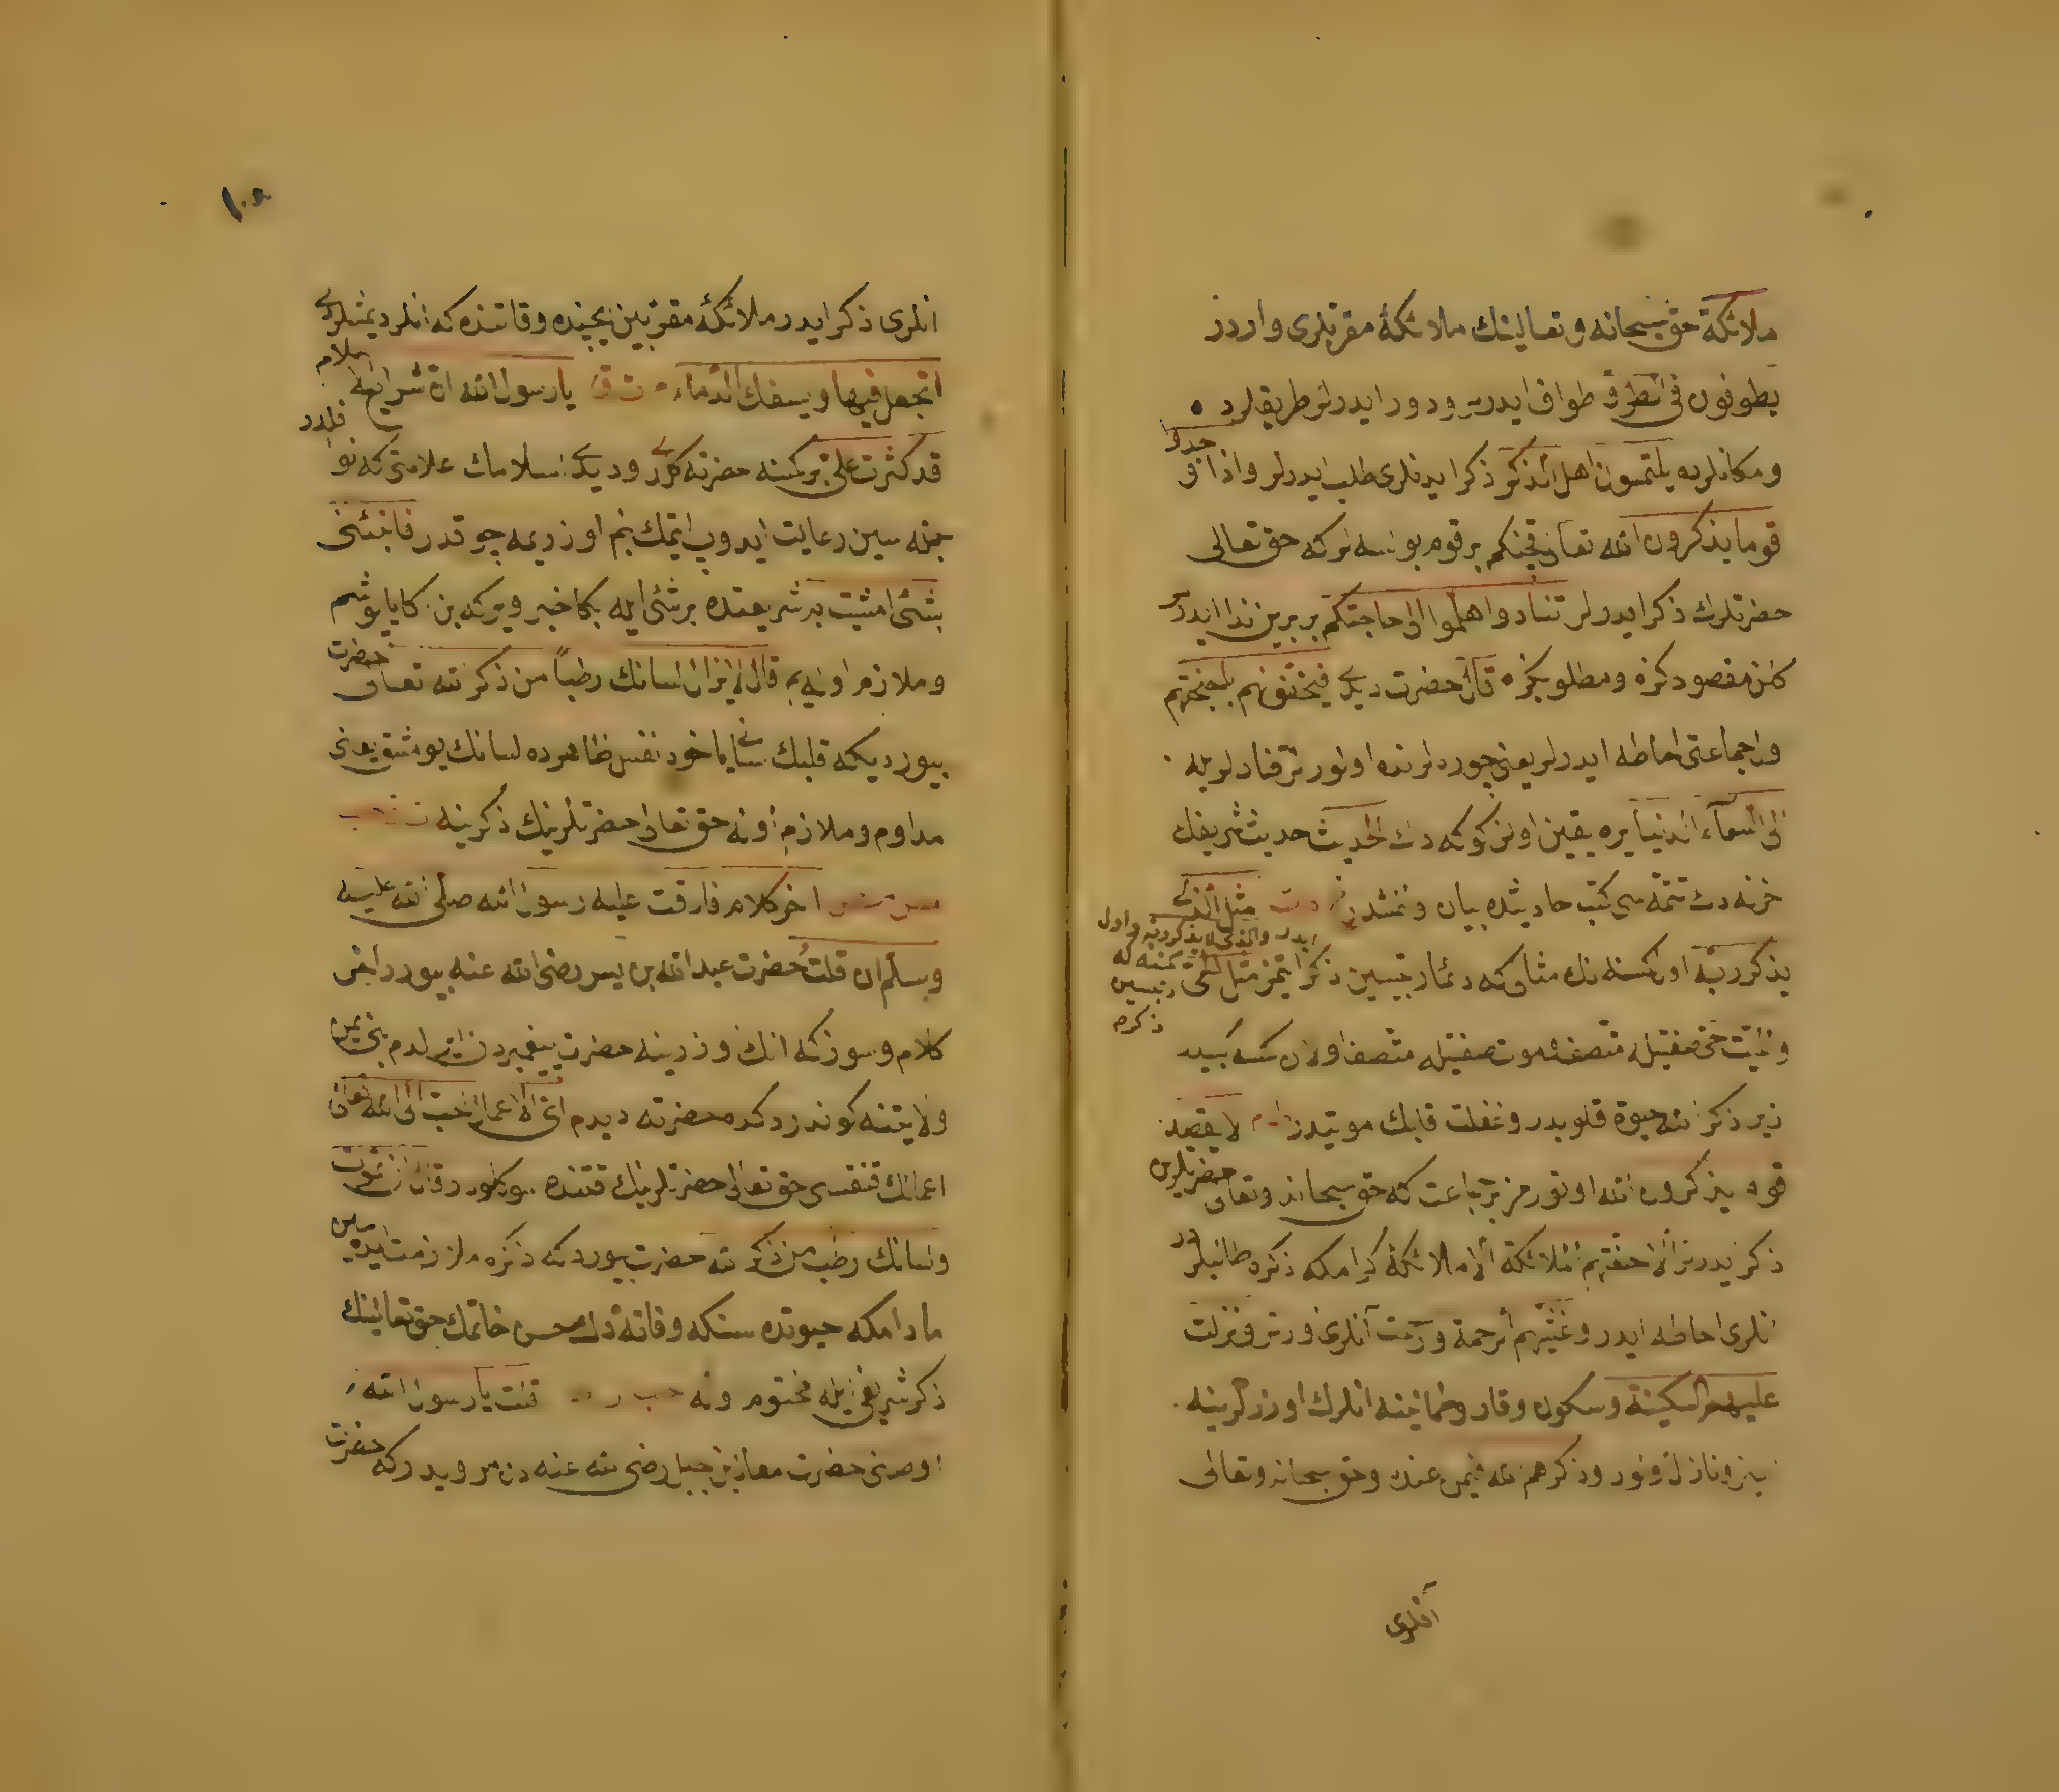 ملائكة حق سبحانه وتعالينك ملائكۀ مقربلرى واردر
يطوفون فى الطرق طواف ايدرلر ودور ايدرلر طريقلرده
ومكانلرده يلتمسون اهل الذكر ذكر ايدنلرى طلب ايدرلر واذا وجدوا
قوما يذكرون الله تعالى قچنكم بر قوم بولسه لر كه حق تعالى
حضرتلرك ذكر ايدرلر تنادوا هلموا الى حاجتكم بر برين ندا ايدرلر
كلن مقصودكزه ومطلوبكزه قال حضرت ديدى فيحفونهم باجنحتهم
اول جماعتى احاطه ايدرلر يعنى چوره لرنده اولورلر قنادلريله
الى السماء الدنيا يره يقين اولن كوكه دك الحديث حديث شريفك
آخرينه دك تتمه سى كتب احاديثده بيان اولنمشدر مثل الذى
يذكر ربه اول كسنه نك مثالى كه ذكر ايدر والذى لا يذكر ربه واول كسنه كه ربيسين ذكر ايتمز مثل الحى
والميت حى صفتيله متصف وموت صفتيله متصف اولان كسنه كبيدر
زير ذكر الله حيوة قلوبدر وغفلت قلبك موتيدر لا يقعد
قوم يذكرون الله اوتورمز بر جماعت كه حق سبحانه وتعالى حضرتلرين
ذكر ايدرلر الا حفتهم الملائكة الا ملائكۀ كرامكه ذكره طالبلردر
انلرى احاطه ايدر وغشيتهم الرحمة ورحمت آنلرى اورتر ونزلت
عليهم السكينة وسكون وقار وطمانينه انلرك اوزرلرينه
اينر ونازل اولور وذكرهم الله فيمن عنده وحق سبحانه وتعالى
آنلرى
١٠٨
انلرى ذكر ايدر ملائكۀ مقربين يچنده وقاتنده كه انلر ديمشلردى
اتجعل فيها ويسفك الدماء ت ق يا رسول الله ان شرايع الاسلام
قد كثرت على بر كسنه حضرته كلدى وديدى اسلامك علامتى كه نوافلدر
جمله سين رعايت ايدوب ايتمك بنم اوزريمه چوقدر فانبئنى
بشئ اتشبث به شريعتده بر شئ ايله بكا خبر ويركه بن اكا ياپوشم
وملازم اوله يم قال لا يزال لسانك رطبا من ذكر الله تعالى حضرت
بيورديكه قلبك لسانى ياخود نفس ظاهرده لسانك يومشق يعنى
مداوم وملازم اوله حق تعالى حضرتلرينك ذكرينه
اخر كلام فارقت عليه رسول الله صلى الله عليه
وسلم ان قلت حضرت عبد الله بن يسر رضى الله عنه بيورر اخر
كلام وسوز كه انك اوزرينه حضرت پيغمبردن ايرلدم بنى يمن
ولايتنه كوندردكده حضرته ديدم اى الاعمال احب الى الله تعالى
اعمالك قنقيسى حق تعالى حضرتلرينك قتنده سوكلودر قال ان تموت
ولسانك رطب من ذكر الله حضرت بيوردكه ذكره ملازمت ايده سين
مادامكه حيوتده سنكه وفاته دك حسن خاتمك حق تعالينك
ذكر شريفى ايله مختوم اوله قلت يا رسول الله
اوصنى حضرت معاذ بن جبل رضى الله عنه دن مرويدر كه حضرت